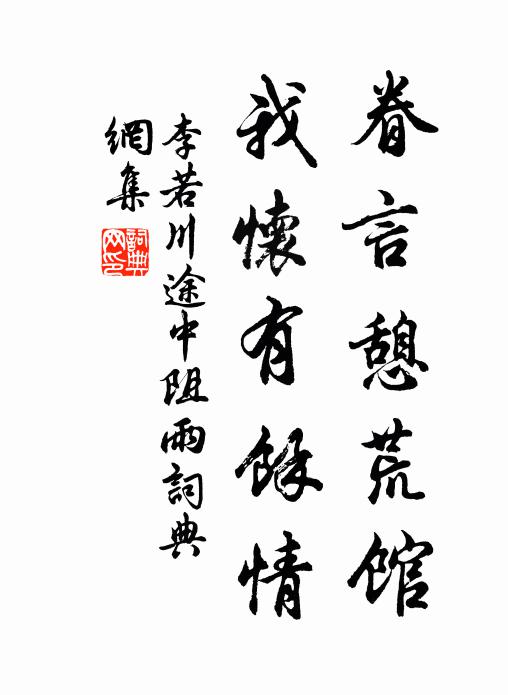 眷言憩荒館
我懷有餘情
李若川途中阻雨詞典
網集
詞典網印